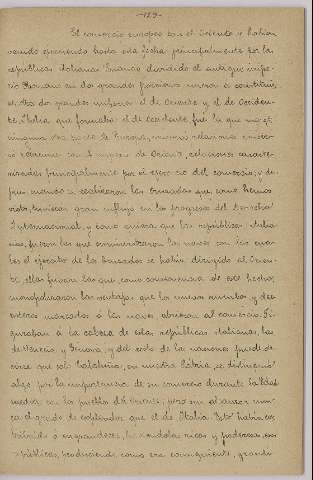 -129-
El comercio europeo con el Oriente se habia
venido ejerciendo hasta esta fecha principalmente por las
republicas italianas. Cuando dividido el antiguo impe-
rio Romano en dos grandes porciones
los dos grandes imperios el de Oriente y el de Occiden-
te, Italia que formaba el de Occidente, fué la que mas
ninguna otra parte de Europa, relaciones
con el imperio de Oriente, relaciones
principalmente por el ejercicio del comercio; y des-
pues cuando se realizaron las cruzadas que, como hemos
visto, tuvieron gran influjo en los progresos del Derecho
Internacional, y como quiera que las republicas italia-
nas, fueron las que suministraron las naves con las cua-
les el ejercito de los cruzados se habia dirigido al Orien-
te, ellas fueron las que, como consecuencia de este hecho,
monopolizaron las ventajas que los nuevos rumbos y des-
mercados ó las naves abrieron al comercio. Fi-
guraban á la cabeza de estas republicas italianas, las
de Venecia, y Genova, y del resto de las naciones puede de-
cirse que solo Cataluña, en nuestra Patria, se distinguió
algo por la importancia de su comercio durante la Edad
media con los pueblos de Oriente, pero sin alcanzar nun-
ca el grado de esplendor que el de Italia. Esto habia con-
tribuido á engrandecer, haciendolas ricas y poderosas, esas
republicas, produciendo como era consiguiente, grande